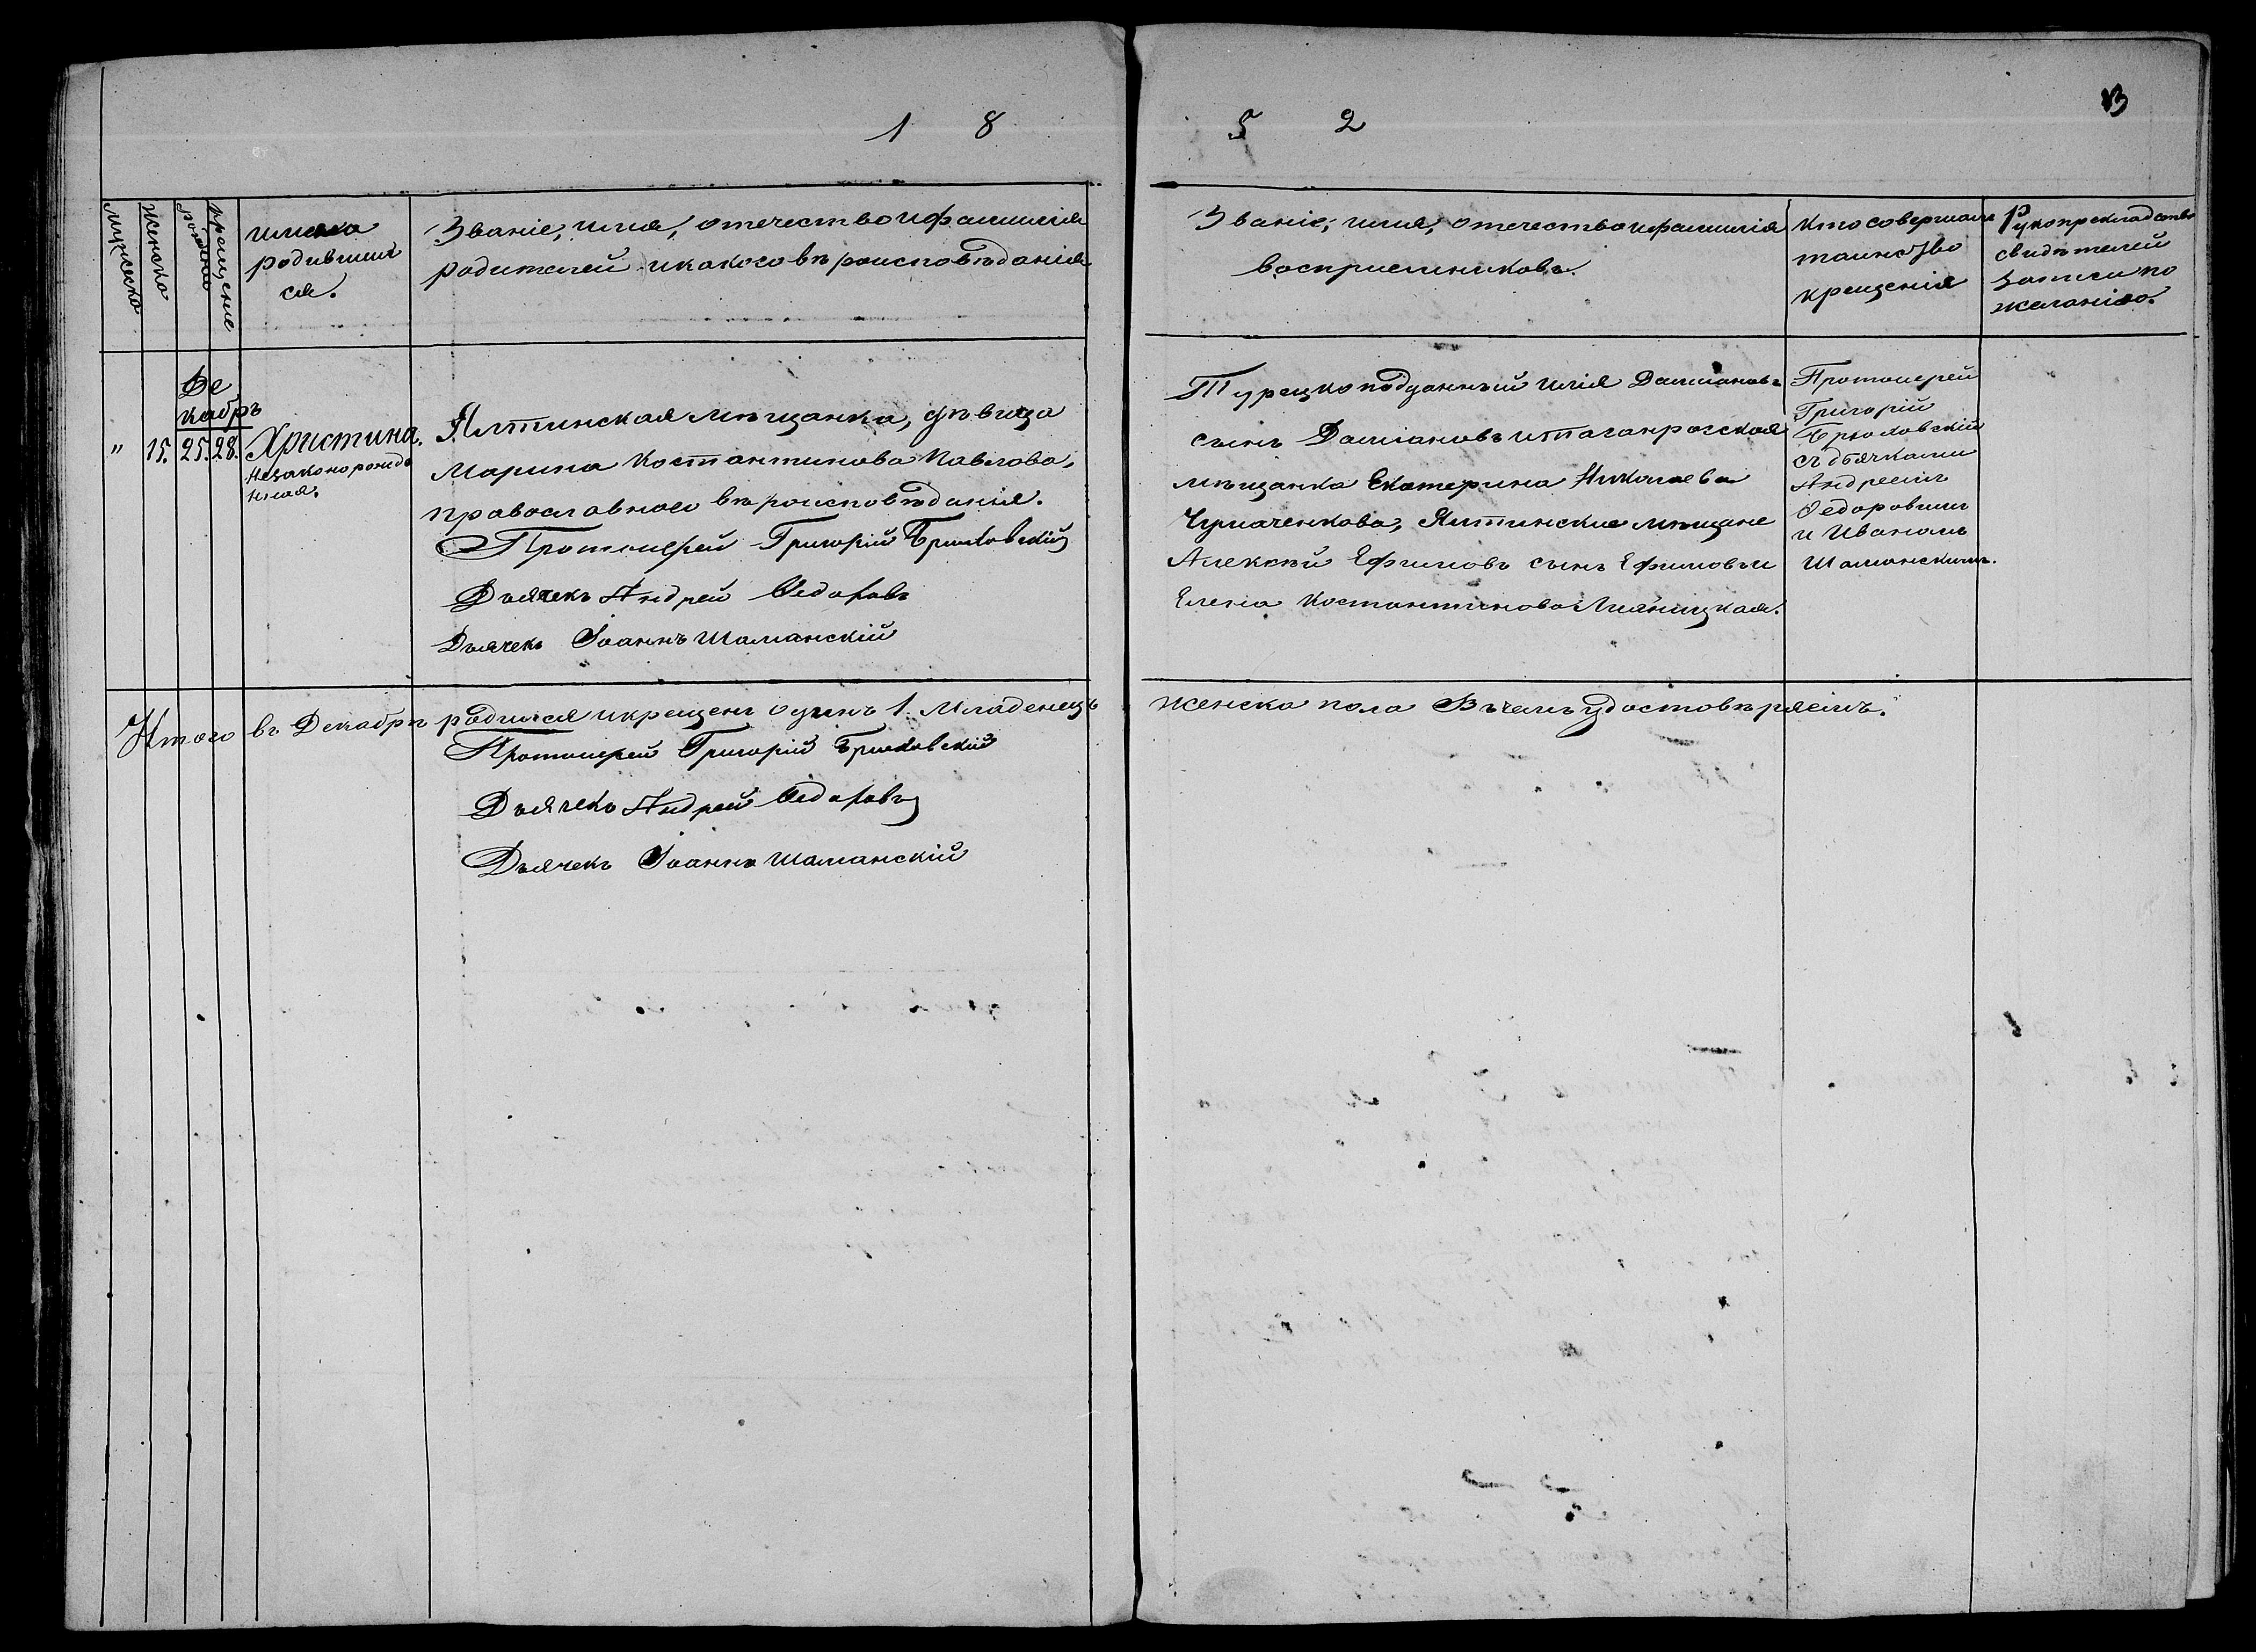 1 8
5 2
13
мужеска
женска
рожденіе
крещеніе
имена
родивших
ся.
Званіе, имя, отечество и фамилія
родителей и какого вѣроисповѣданія
Званіе, имя, отечество и фамилія
воспріемниковъ.
Кто совершалъ
таинство
крещенія
Рукоприкладство
свидѣтелей
записи по
желанію.
Де
кабрь
" 15. 25. 28. Христина.
незаконорожде
нная.
Ялтинская мѣщанка, дѣвица
Марина Костантинова Павлова,
православного вѣроисповѣданія.
Протоіерей Григорій Брюховскій
Дьячекъ Андрей Ѳедоровъ
Дьячекъ Іоаннъ Шаманскій
Турецкоподданный Илія Даміановъ
сынъ Даміановъ и таганрогская
мѣщанка Екатерина Николаева
Чумаченкова, Ялтинские мѣщане
Алексѣй Ефимовъ сынъ Ефимовъ и
Елена Костантинова
Протоиерей
Григорій
Брюховскій
съ дьячками
Андреемъ
Ѳедоровимъ
и Иваномъ
Шаманскимъ.
Итого въ Декабрѣ родился и крещенъ одинъ 1. Младенецъ
женска пола Въ чемъ удостовѣряемъ.
Протоиерей Григорій Брюховскій
Дьячекъ Андрей Ѳедоровъ
Дьячекъ Іоаннъ Шаманскій